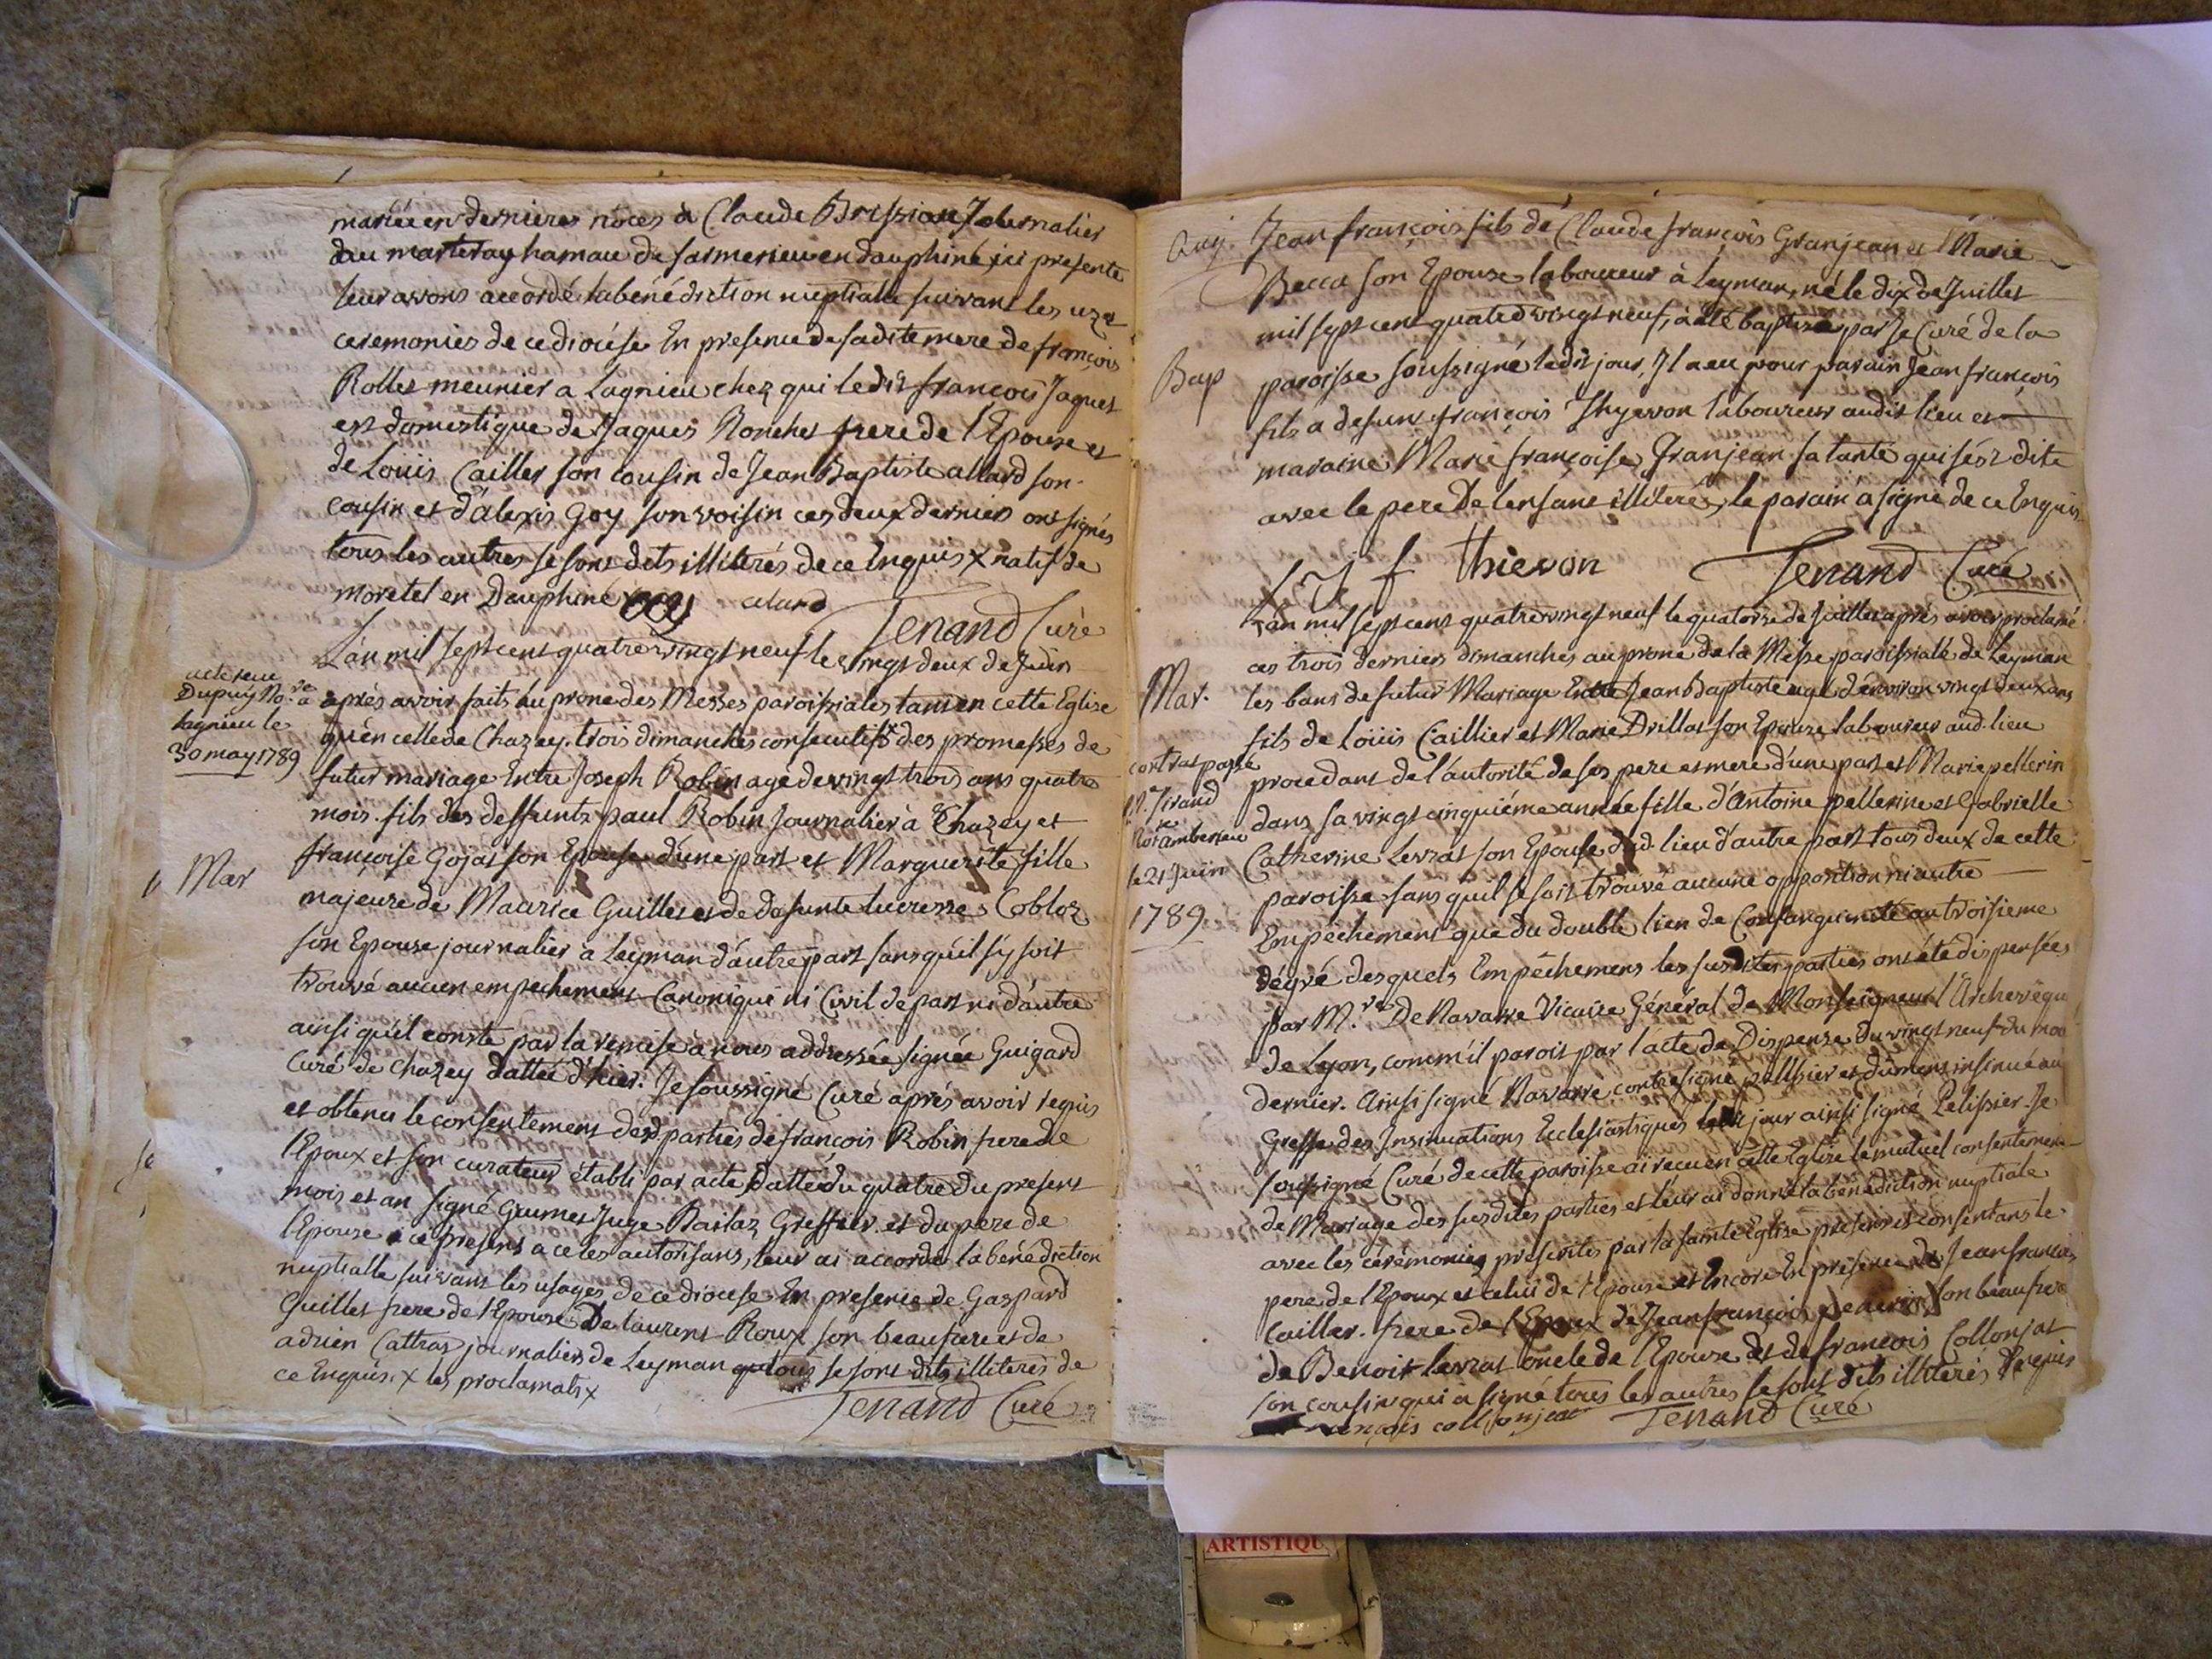 mariée en dernieres nôces à Claude Brission Journalier
du marteray hamau de sarmerieu en dauphiné ici presente
leur avons accordé la bénédiction nuptialle suivant les uz et
ceremonies de ce diocése En presence de sadite mere de françois
Rollet meunier a Lagnieu chez qui ledit françois Jaquet
est domestique de Jaques Ronchet frere de l'Epouse et
de Loüis Cailler son cousin de Jean Baptiste allard son
cousin et d'alexis Goy son voisin ces deux derniers ont signés
tous les autres se sont dits illiterés de ce Enquis x natif de
moretel en Dauphiné x Goy alard
Tenand Curé
L'an mil sept cent quatre vingt neuf le vingt deux de Juin
acte reçu
Dupuy No.re a
lagnieu le
30 may 1789
après avoir faits au prone des Messes paroissiales tant en cette Eglise
qu'en celle de Chazey. trois dimanches consecutifs x des promesses de
futur mariage Entre Joseph Robin agé de vingt trois ans quatre
mois. fils des deffunts paul Robin Journalier à Chazey et
Mar
françoise Gojat son Epouse d'une part et Marguerite fille
majeure de Maurice Guillet et de defunte lucresse Cobloz
son Epouse journalier a Leyman d'autre part sans qu'il s'y soit
trouvé aucun empechement Canonique ni Civil de part ni d'autre
ainsi qu'il conste par la remise à nous addressée signée Guigard
Curé de Chazey dattée d'hier. Je soussigné Curé après avoir requis
et obtenu le consentement desd parties de françois Robin frere de
l'Epoux et son curateur établi par acte datté du quatre du present
mois et an signé Guimet Juge Barlaz Greffier et du pere de
l'Epouse a ce present a ce les autorisans, leur ai accordé la bénédiction
nuptialle suivant les usages de ce diocese En presence de Gaspard
Guillet frere de l'Epouse De laurent Roux son beaufrere et de
adrien Cattraz journaliers de Leyman qui tous se sont dits illiterés de
ce Enquis. x les proclamats x
Tenand Curé
Jean françois fils de Claude françois Granjean et Marie
Becca son Epouse laboureur à Leyman, né le dix de Juillet
mil sept cent quatre vingt neuf, à été baptisé par Je Curé de la
Bap
paroisse soussigné ledit jour, Il a eu pour parain Jean françois
fils a defunt françois Thyevon laboureur audit lieu et
maraine Marie françoise Granjean sa tante qui s'est dite
avec le pere De l'enfant illiteré, le parain a signé de ce Enquis
J f thievon Tenand Curé
L'an mil sept cent quatre vingt neuf le quatorze de Juillet après avoir proclamé
ces trois derniers dimanches au prone de la Messe paroissiale de Leyman
Mar.
les bans de futur Mariage Entre Jean Baptiste agé d'environ vingt deux ans
fils de Loüis Caillier et Marie Drillat son Epouse laboureur aud. lieu
contrat passé
procedant de l'autorité de ses pere et mere d'une part et Marie pellerin
dans sa vingt cinquiéme année fille d'Antoine pellerin et Gabrielle
Not.re amberieu
Catherine Levrat son Epouse dud. lieu d'autre part tous deux de cette
le 21 Juin
1789
paroisse sans quil se soit trouvé aucune opposition ni autre
Empêchement que du double lien de Consanguinité au troisieme
dégré desquels Empêchemens les susdites parties ont été dispensées
par M.re De Navarre Vicaire Général de Monseigneur l'Archevêque
de Lyon, comm'il paroit par l'acte de Dispense du vingt neuf du mois
dernier. Ainsi signé Navarre contresigné pelissier et dûment insinué au
Greffe des Insinuations Ecclesiastiques led jour ainsi signé Pelissier. Je
soussigné Curé de cette paroisse ai reçu en cette Eglise le mutuel consentement
de Mariage des susdites parties et leur ai donné la bénédiction nuptiale
avec les cérémonies prescrites par la sainte Eglise presens et consentans le
pere de l'Epoux et celui de l'Epouse et Encore En presence de Jean francois
Cailler. frere de l'Epoux de Jean françois son beau frere
de Benoit levrat oncle de l'Epouse et de françois Collonjat
son cousin qui a signé tous les autres se sont dits illiterés Requis
françois collonjeat Tenand Curé
ARTISTIQU